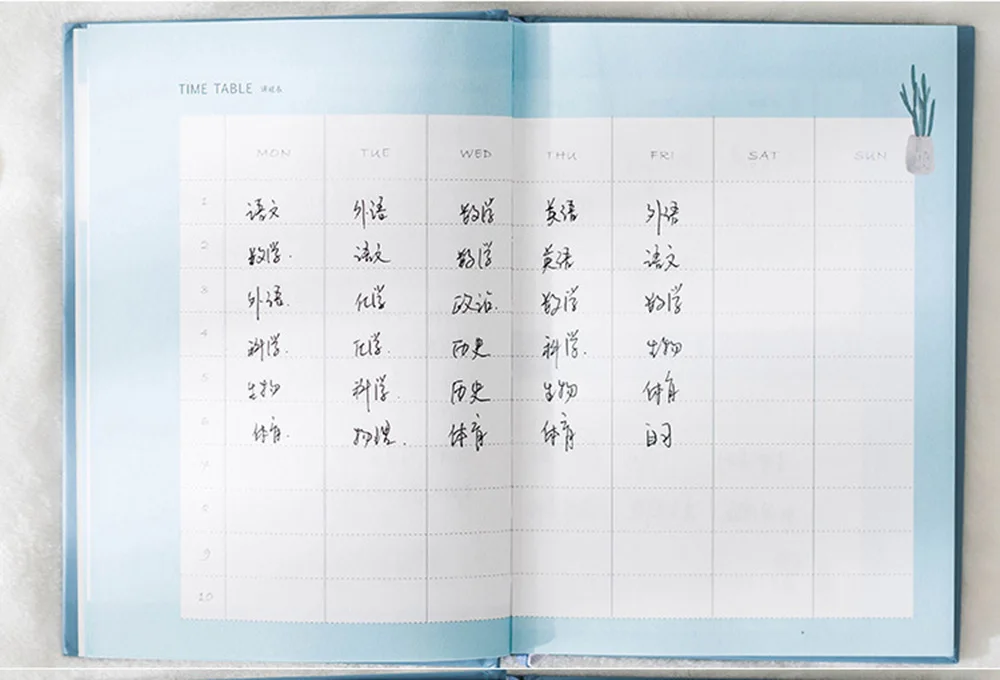 TIME TABLE 课程表
MON TUE WED THU FRI SAT SUN
1 语文 外语 数学 英语 外语
2 数学. 语文 数学 英语 语文
3 外语. 化学 政治. 数学 数学
4 科学. 化学. 历史 科学. 生物
5 生物 科学. 历史 生物 体育
6 体育. 物理. 体育 体育 自习
7
8
9
10